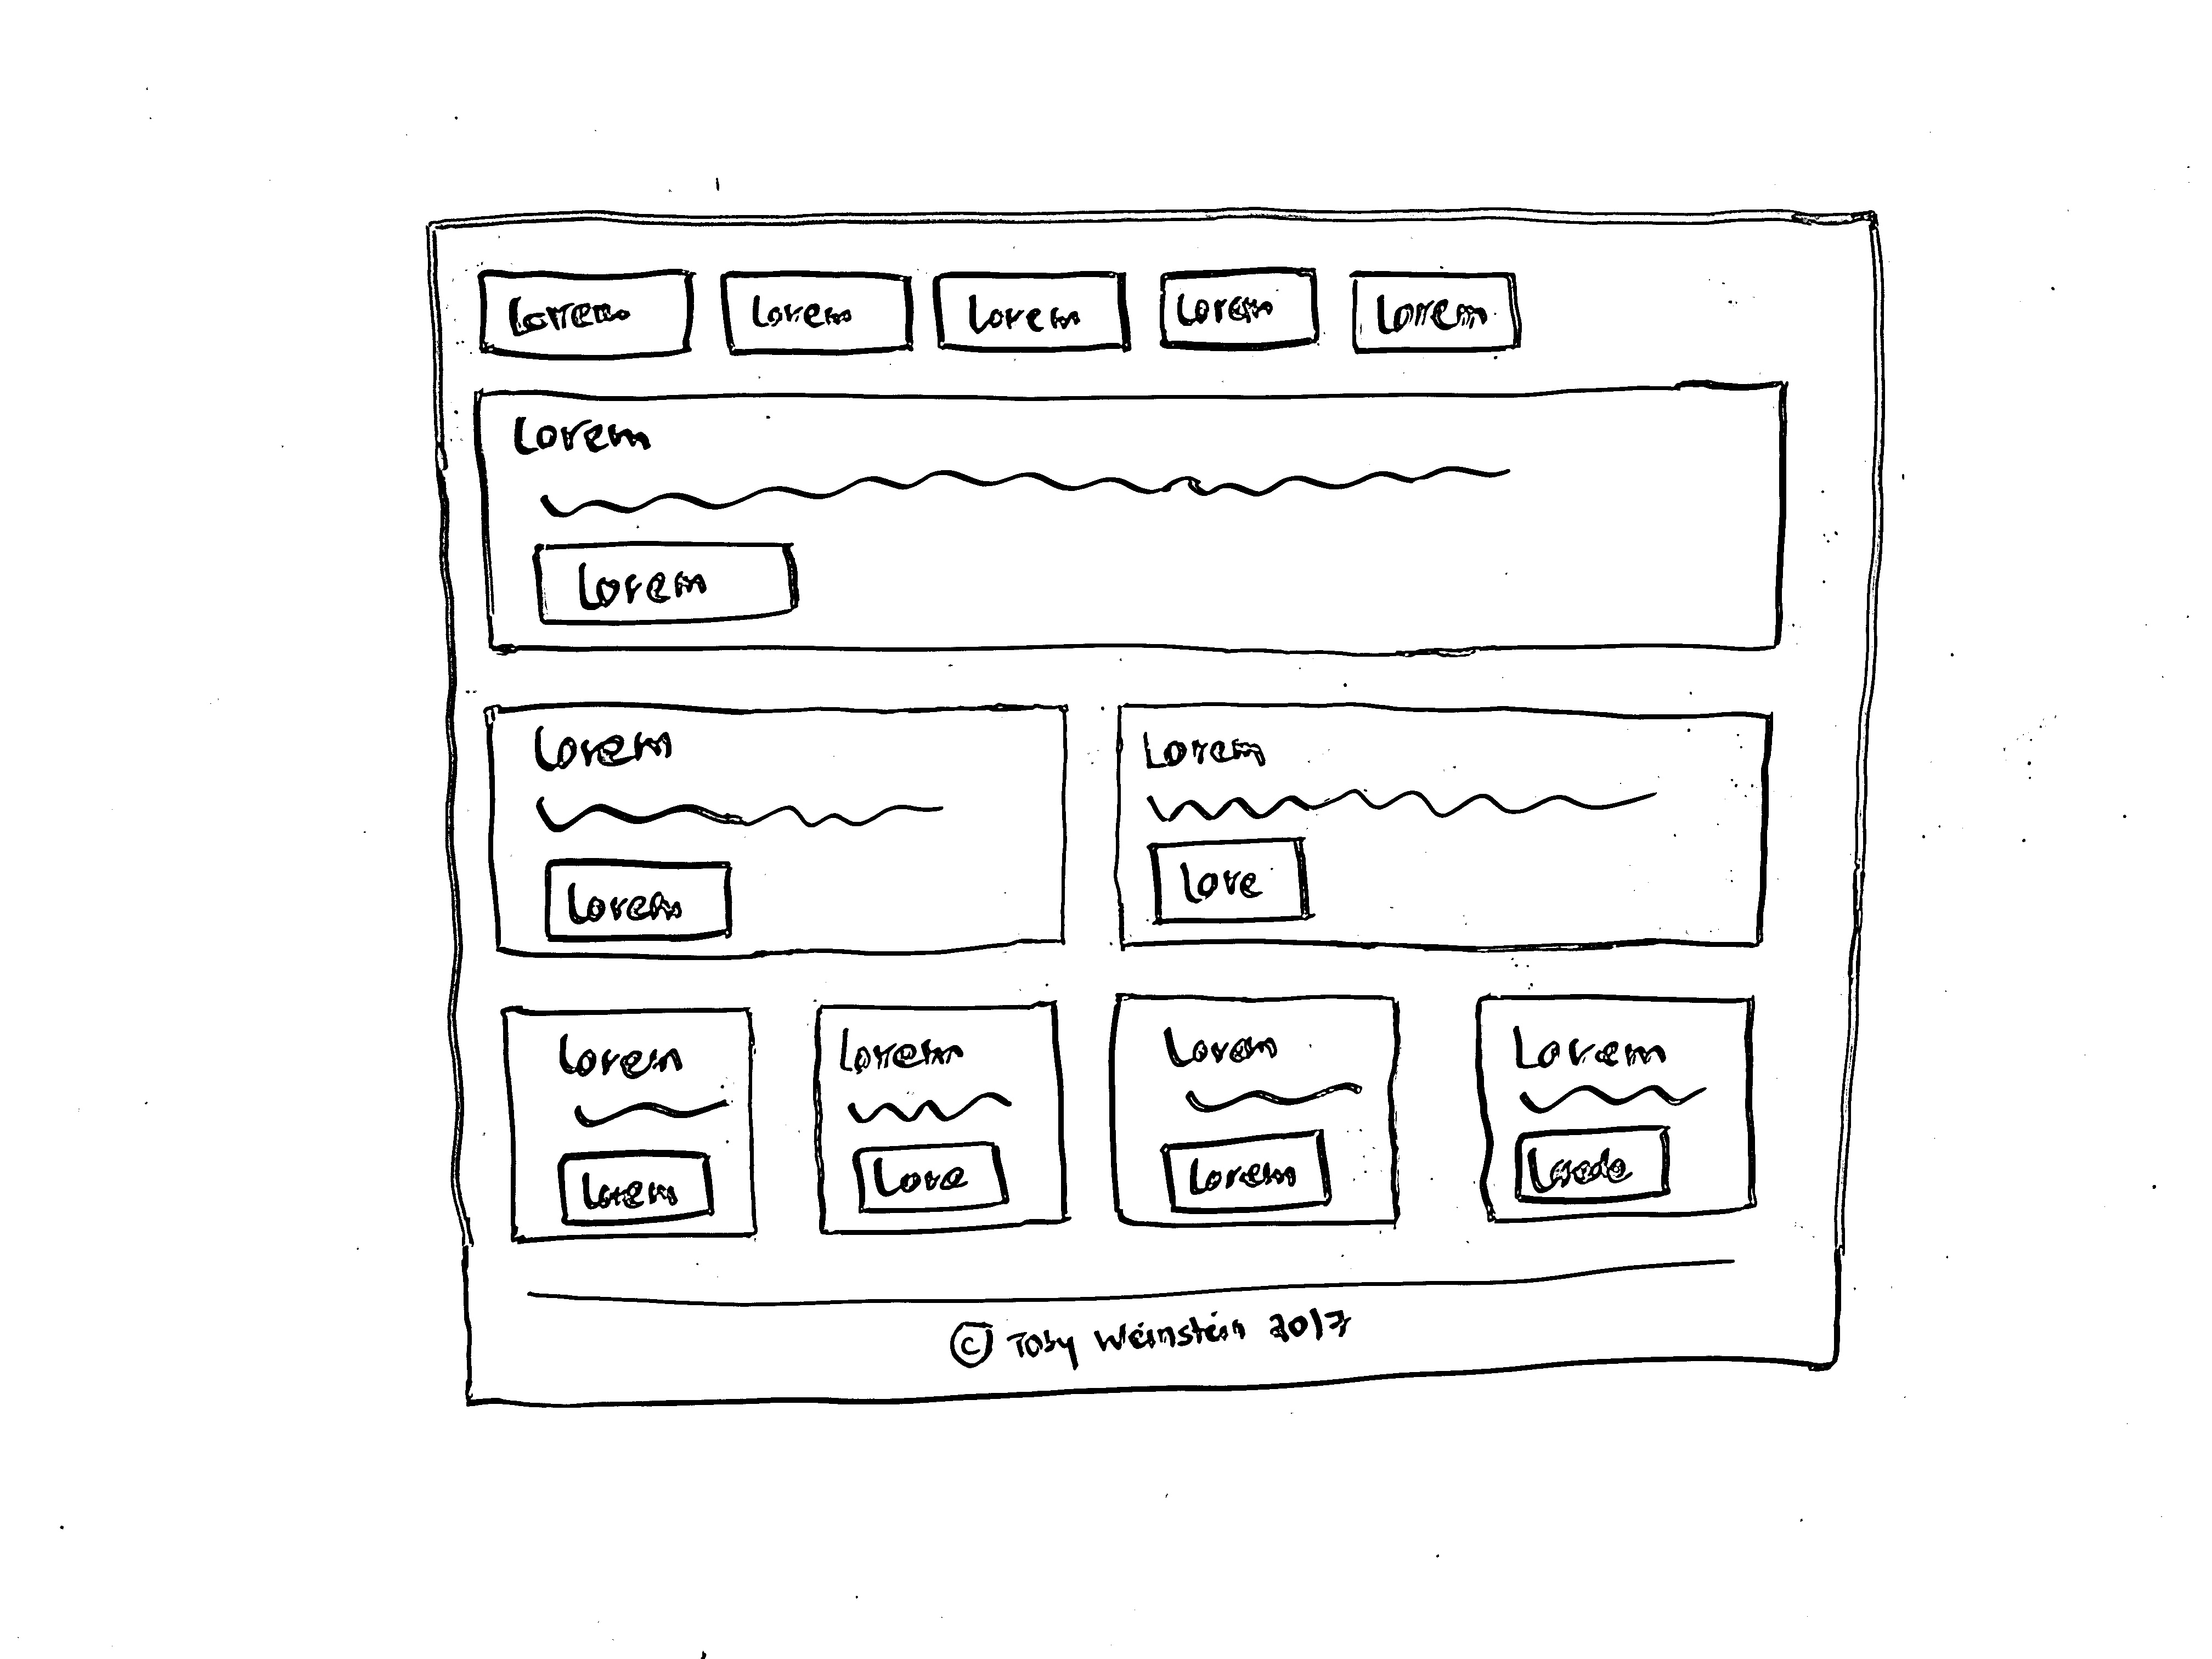 Lorem Lorem Lorem Lorem Lorem
Lorem
Lorem
Lorem
Lorem
Lorem
Love
Lorem
Lorem
Lorem
Love
Lorem
Lorem
Lorem
© Toby Weinstein 2017